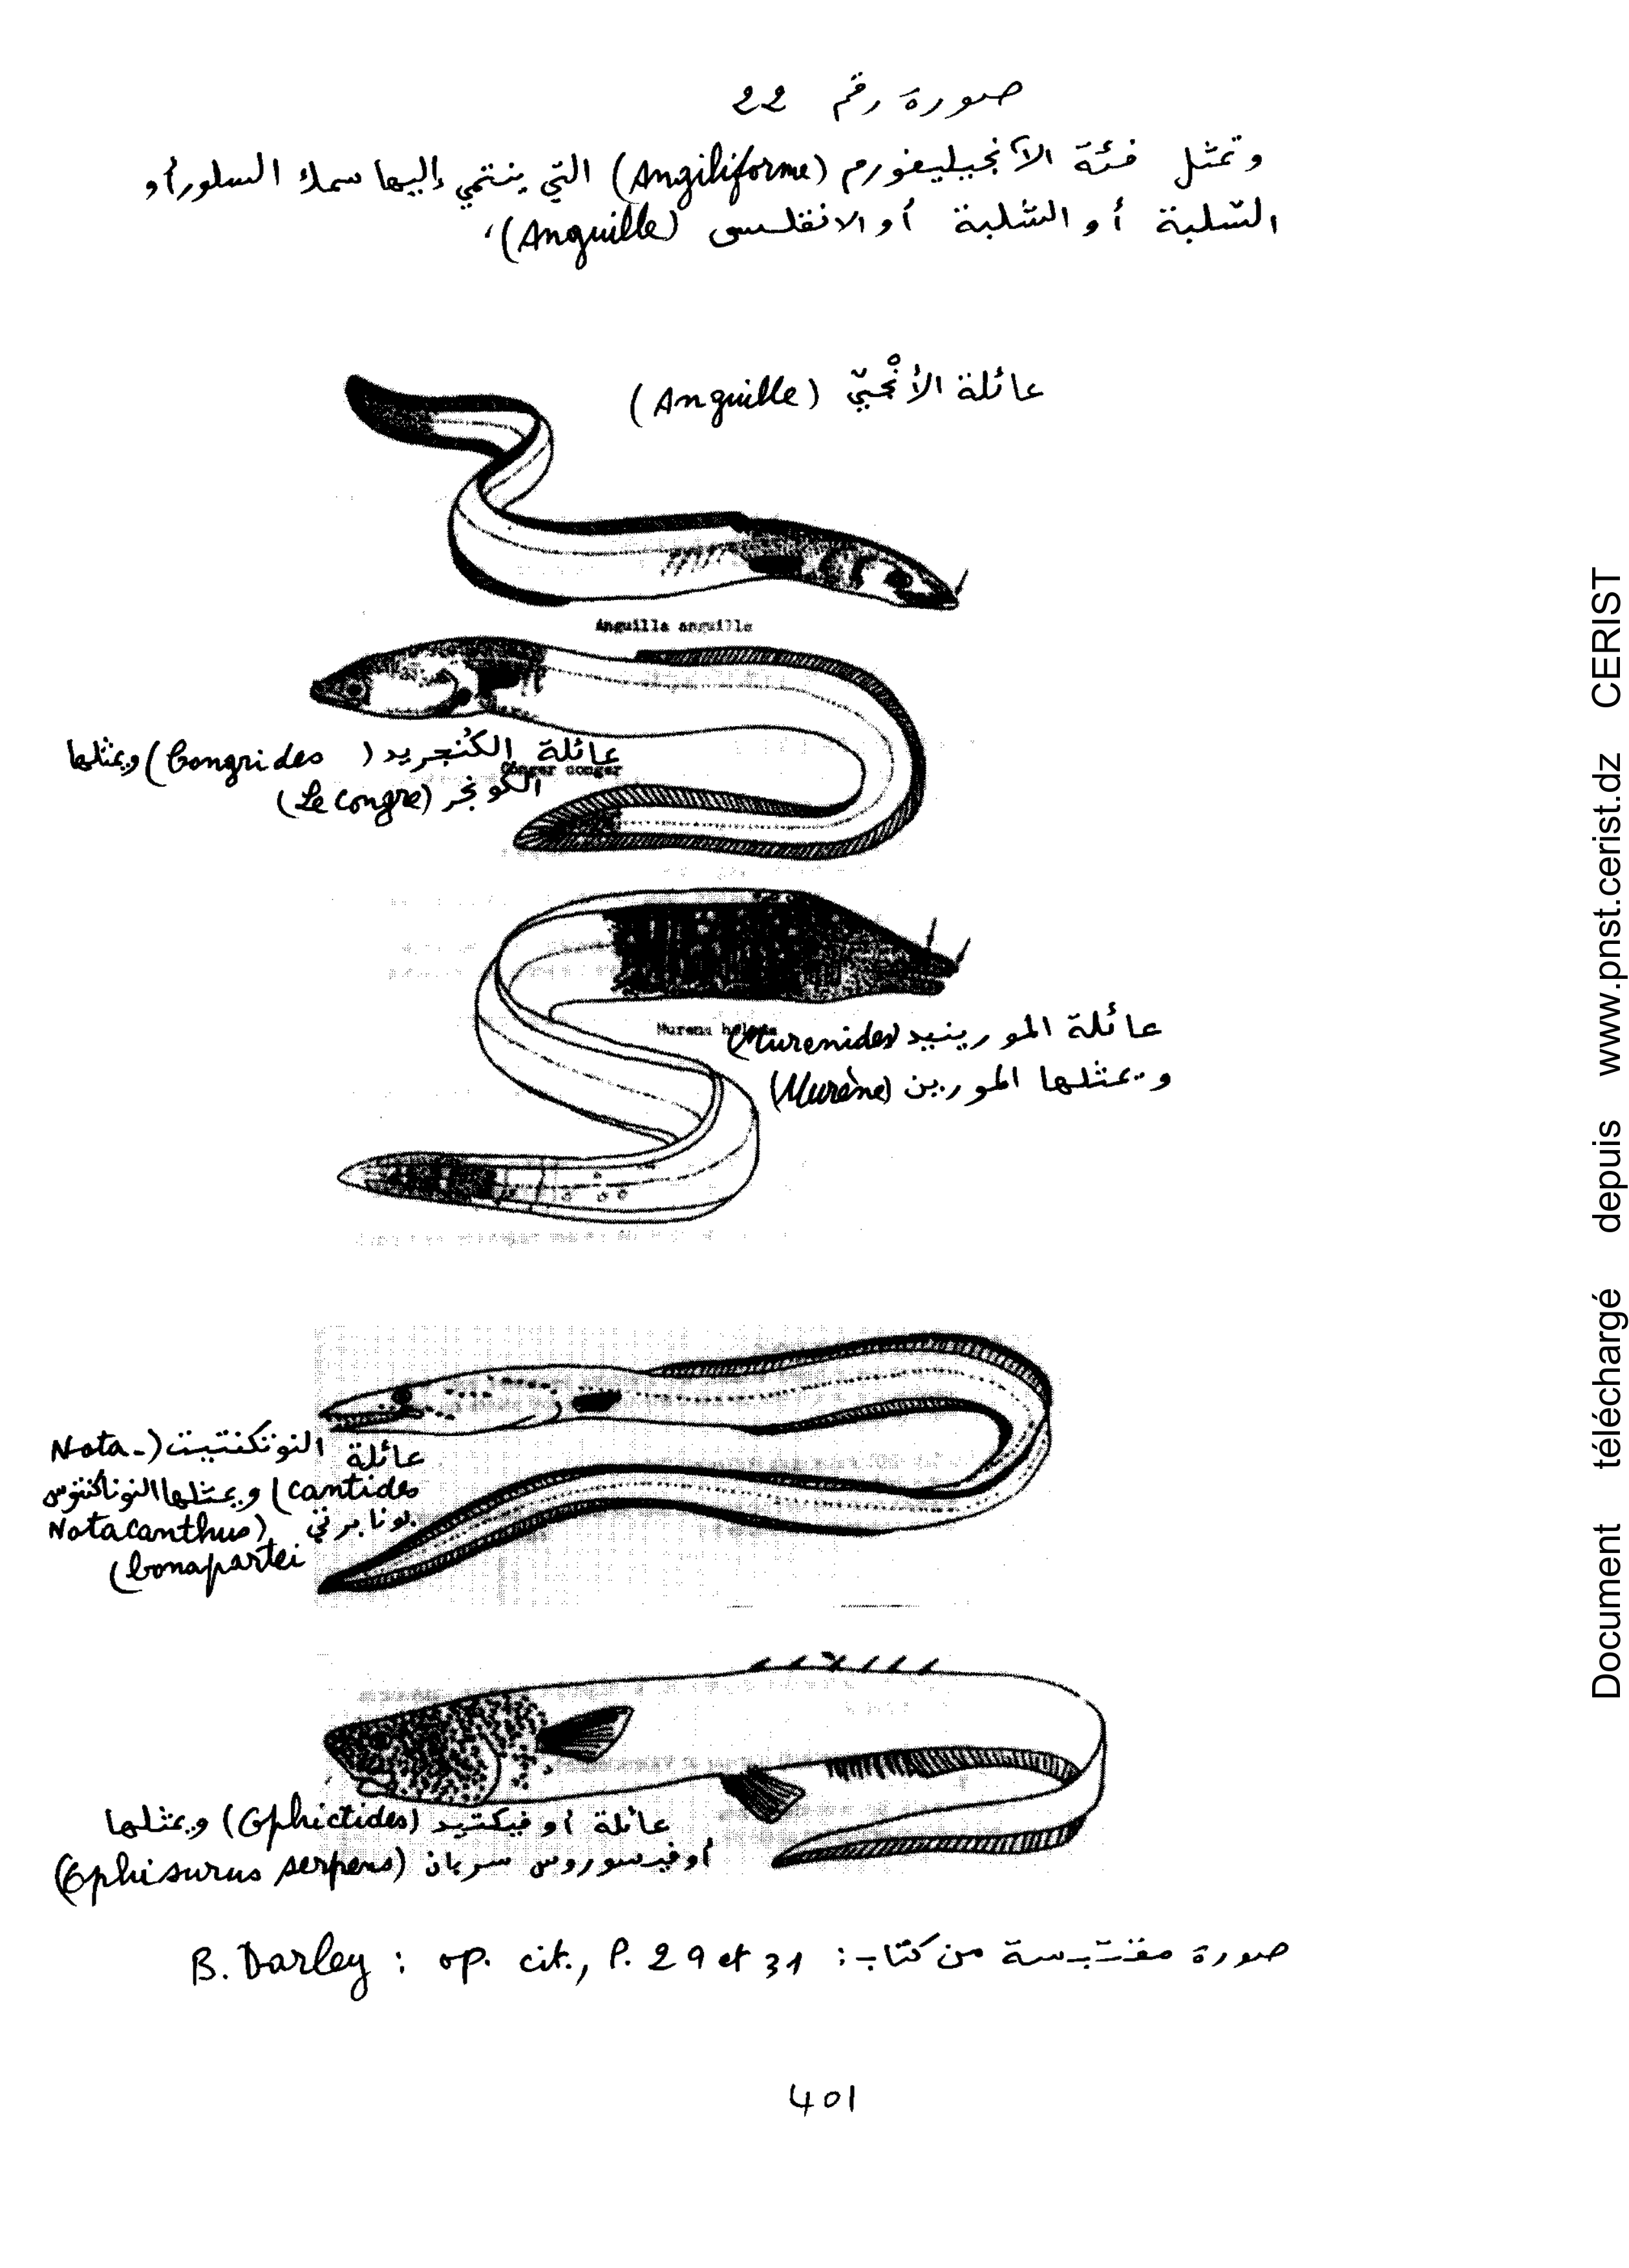 صورة رقم 22
وتمثل فئة الآنجيليفورم (Angiliforme) التي ينتمي إليها سمك السلور أو
السّلبة أو الشّلبة أو الانقلس (Anguille)،
عائلة الأنْجيّ (Anguille)
Anguilla anguilla
عائلة الكُنجريد (Congrides) ويمثلها
Conger conger
الكونجر (Le congre)
Murena helena
عائلة المورينيد (Murenides)
ويمثلها المورين (Murène)
عائلة النوتكنتيت (Nota-
cantides) ويمثلها النوتاكنتوس
بونابرتي (Notacanthus
bonapartei)
عائلة أوفيكتيد (Ophictides) ويمثلها
أوفيسوروس سربان (Ophisurus serpens)
صورة مقتبسة من كتاب: B. Darley : op. cit., P. 29 et 31
401
Document téléchargé depuis www.pnst.cerist.dz CERIST